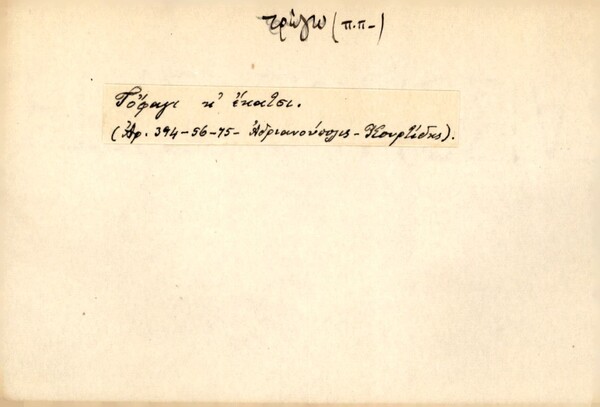 τρώγω (π.π-)
Τὄφαγε κ' ἔκατσε.
(Ἀρ. 394-56-75- Ἀδριανούπολις - Κουρτίδης).